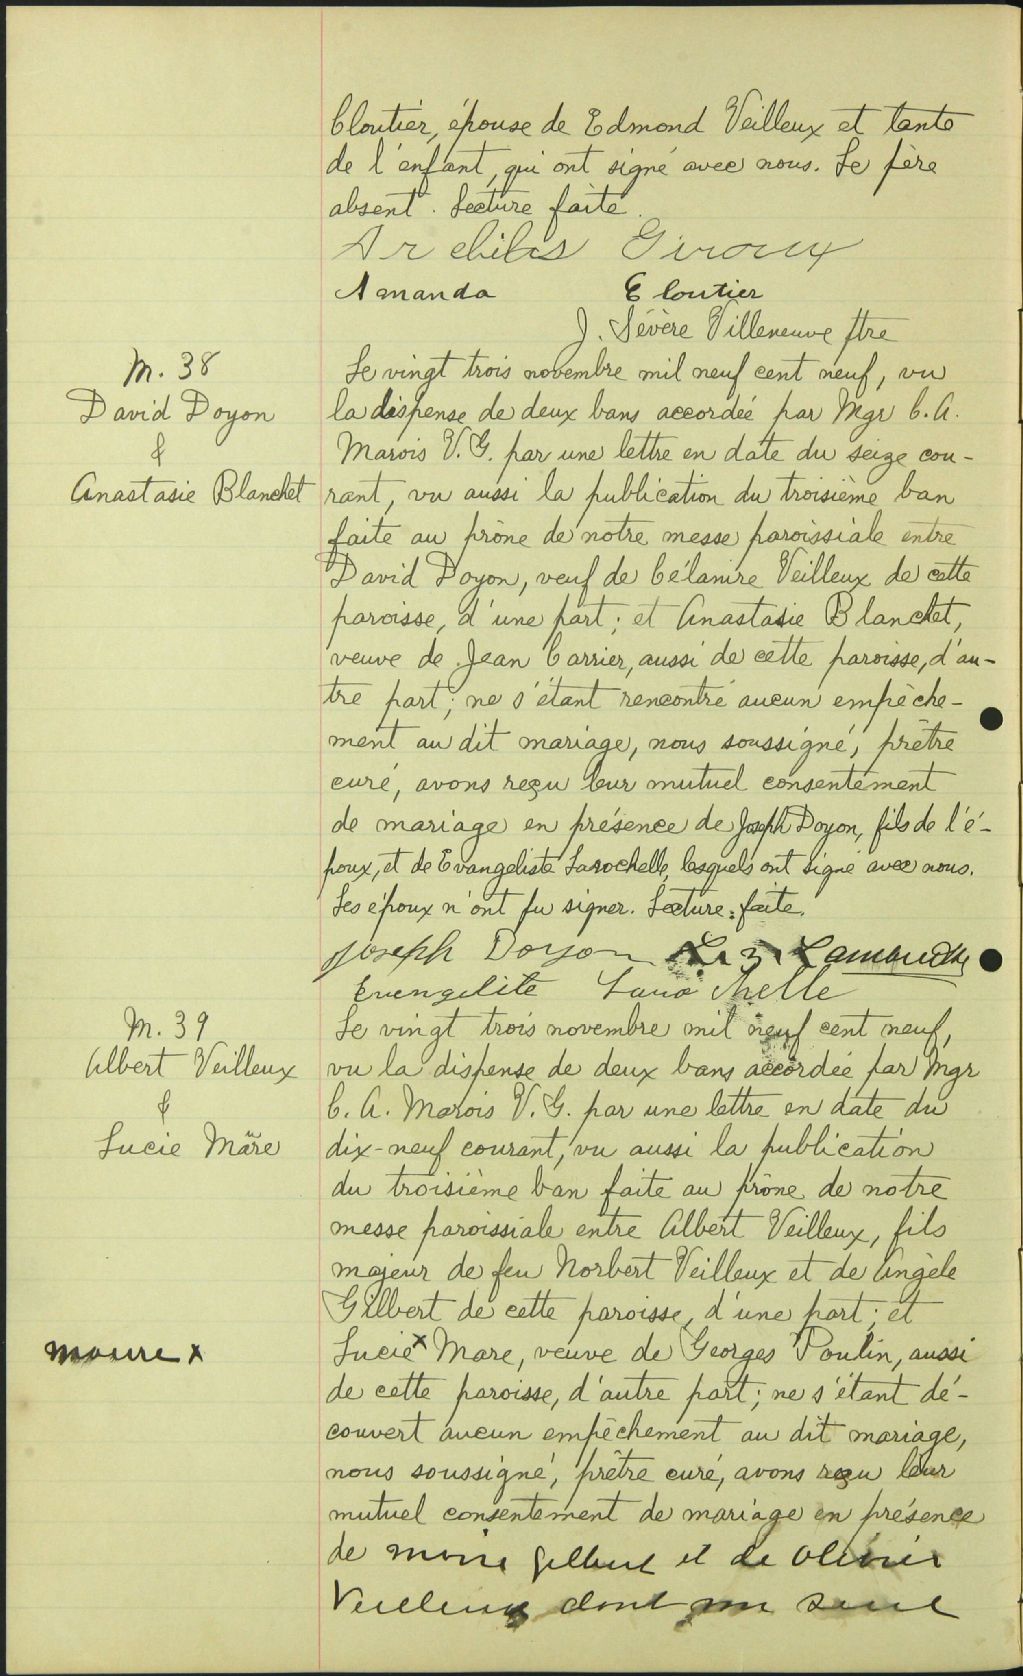 Cloutier, épouse de Edmond Veilleux et tante
de l'enfant, qui ont signé avec nous. Le père
absent. Lecture faite.
Giroux
Amanda Cloutier
J. Sévère Villeneuve Ptre
M. 38
David Doyon
&
Anastasie Blanchet
Le vingt trois novembre mil neuf cent neuf, vu
la dispense de deux bans accordée par Mgr C. A.
Marois V. G. par une lettre en date du seize cou-
rant, vu aussi la publication du troisième ban
faite au prône de notre messe paroissiale entre
David Doyon, veuf de Célanire Veilleux de cette
paroisse, d'une part; et Anastasie Blanchet,
veuve de Jean Carrier, aussi de cette paroisse, d'au-
tre part; ne s'étant rencontré aucun empêche-
ment au dit mariage, nous soussigné, prêtre
curé, avons reçu leur mutuel consentement
de mariage en présence de Joseph Doyon, fils de l'é-
poux, et de Evangeliste Larochelle, lesquels ont signé avec nous.
Les époux n'ont pu signer. Lecture faite.
Joseph Doyon
M. 39
Albert Veilleux
&
Lucie Mare
Le vingt trois novembre mil neuf cent neuf,
vu la dispense de deux bans accordée par Mgr
C. A. Marois V. G. par une lettre en date du
dix-neuf courant, vu aussi la publication
du troisième ban faite au prône de notre
messe paroissiale entre Albert Veilleux, fils
majeur de feu Norbert Veilleux et de Angèle
Gilbert de cette paroisse, d'une part; et
Lucie x Mare, veuve de Georges Poulin, aussi
de cette paroisse, d'autre part; ne s'étant dé-
couvert aucun empêchement au dit mariage,
nous soussigné, prêtre curé, avons reçu leur
mutuel consentement de mariage en présence
de Gilbert et de Olivier
Veilleux dont un seul